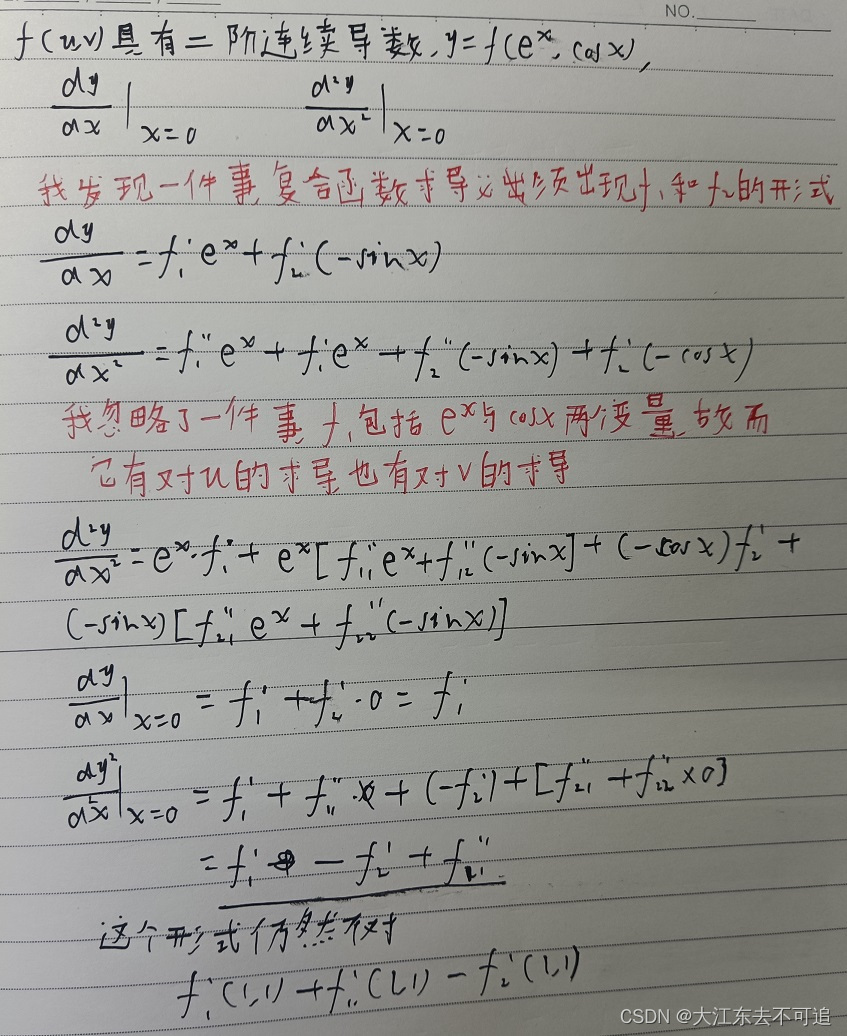 NO.
f(u,v)具有二阶连续导数,y=f(e^x,cosx),
dy/dx|x=0 d²y/dx²|x=0
我发现一件事,复合函数求导必出须出现f₁和f₂的形式
dy/dx = f₁'e^x + f₂'(-sinx)
d²y/dx² = f₁''e^x + f₁'e^x + f₂''(-sinx) + f₂'(-cosx)
我忽略了一件事 f₁包括 e^x与cosx两个变量,故而
它有对u的求导也有对v的求导
d²y/dx² = e^x·f₁' + e^x[f₁₁''e^x+f₁₂''(-sinx] + (-cosx)f₂' +
(-sinx)[f₂₁''e^x + f₂₂''(-sinx)]
dy/dx|x=0 = f₁' + f₂'·0 = f₁'
dy²/d²x|x=0 = f₁' + f₁₁'' + (-f₂') + [f₂₁'' + f₂₂''×0]
= f₁' - f₂' + f₂₁''
这个形式仍然不对
f₁'(1,1) + f₁₁''(1,1) - f₂'(1,1)
CSDN @大江东去不可追